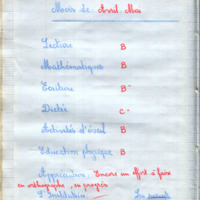 Mois de: Avril. Mai
Lecture B
Mathématiques B
Ecriture B-
Dictée C-
Activités d'éveil B
Education physique B
Appréciation: Encore un effort à faire
en orthographe, en progrès
L'Institutrice Les parents